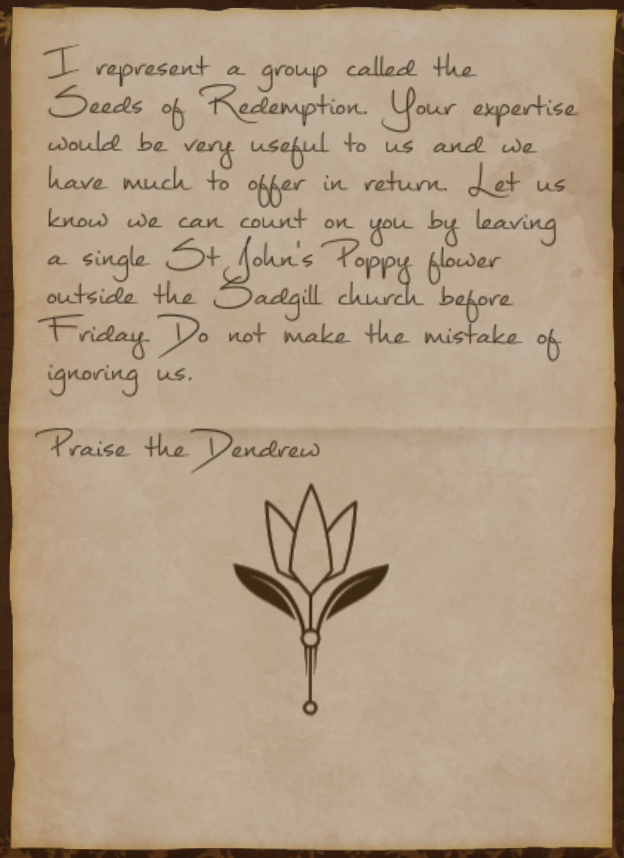 I represent a group called the
Seeds of Redemption. Your expertise
would be very useful to us and we
have much to offer in return. Let us
know we can count on you by leaving
a single St John's Poppy flower
outside the Sadgill church before
Friday. Do not make the mistake of
ignoring us.
Praise the Dendrew